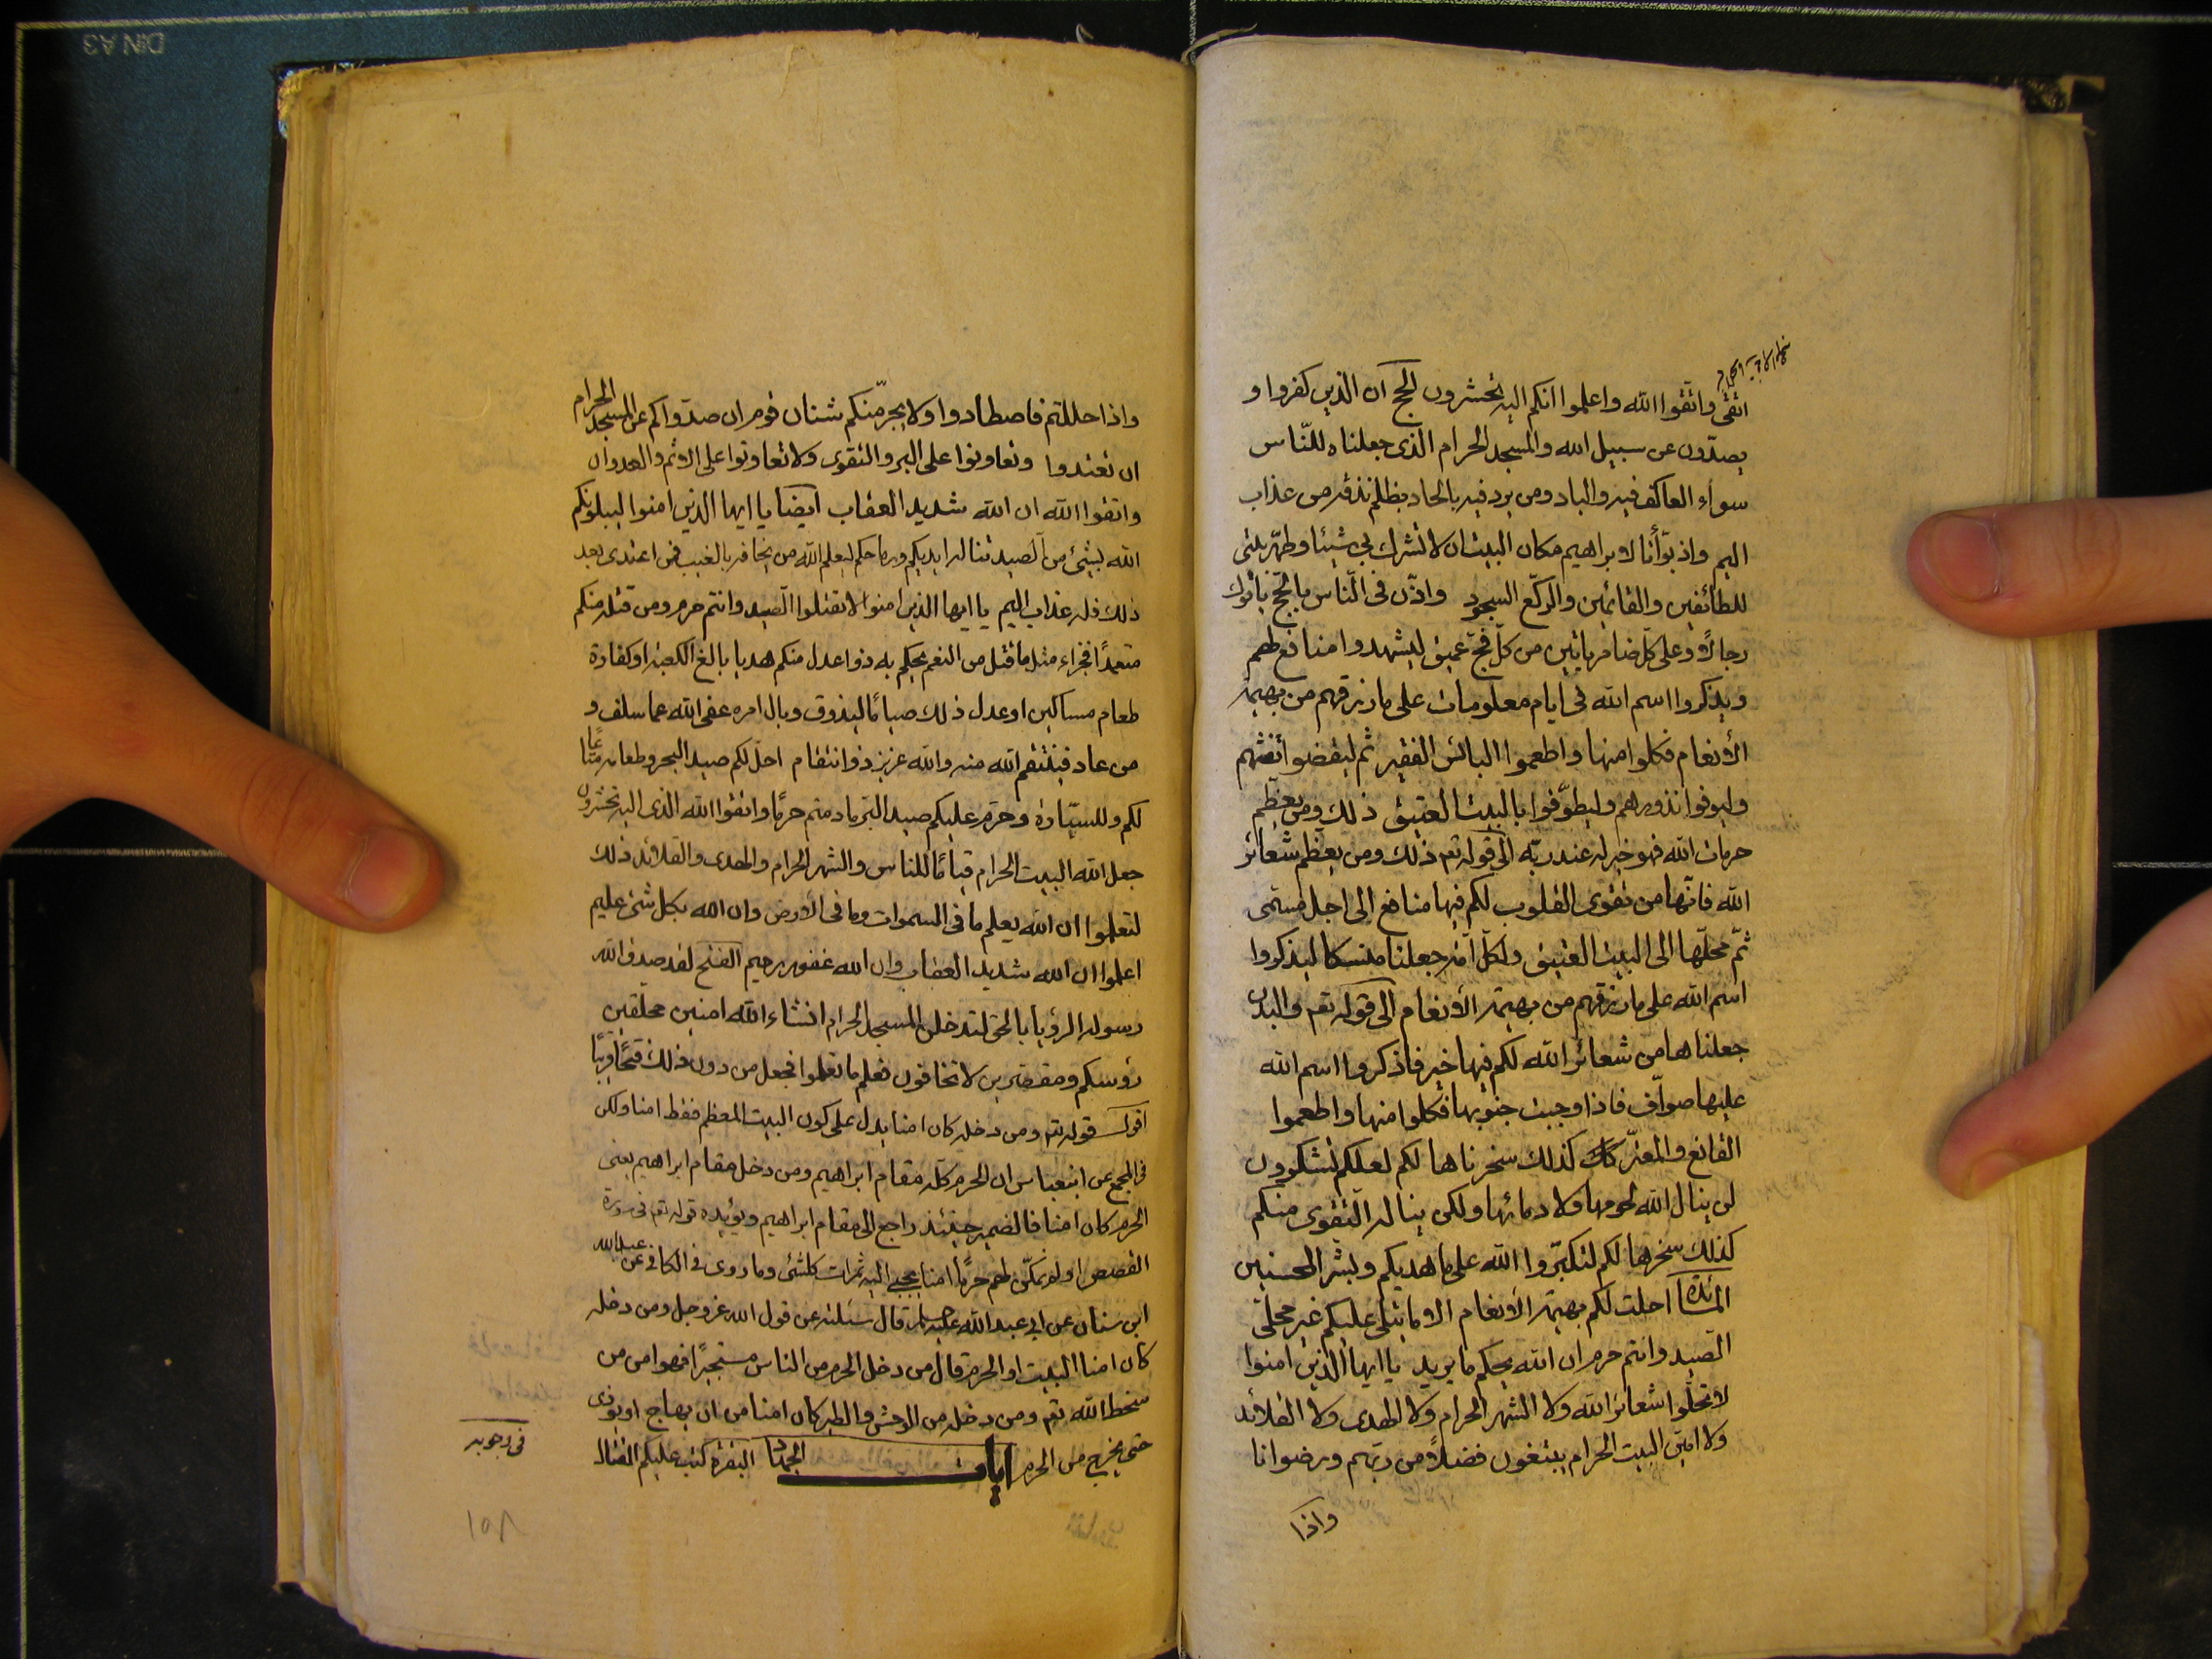 اتقى واتقوا الله واعلموا انكم اليه تحشرون الحج ان الذين كفروا و
يصدّون عن سبيل الله والمسجد الحرام الذى جعلناه للنّاس
سوآء العاكف فيه والباد ومن يرد فيه بالحاد بظلم نذقه من عذاب
اليم واذ بوّأنا لابراهيم مكان البيت ان لا تشرك بى شيئا وطهّر بيتى
للطائفين والقائمين والركّع السجود واذّن فى النّاس بالحج يأتوك
رجالًا وعلى كلّ ضامر ياتين من كلّ فجّ عميق ليشهدوا منافع لهم
ويذكروا اسم الله فى ايام معلومات على ما رزقهم من بهيمة
الأنعام فكلوا منها واطعموا البائس الفقير ثم ليقضوا تفثهم
وليوفوا نذورهم وليطوّفوا بالبيت العتيق ذلك ومن يعظّم
حرمات الله فهو خير له عند ربّه الى قوله تعم ذلك ومن يعظم شعائر
الله فانّها من تقوى القلوب لكم فيها منافع الى اجل مسمّى
ثمّ محلّها الى البيت العتيق ولكلّ امّة جعلنا منسكا ليذكروا
اسم الله على ما رزقهم من بهيمة الأنعام الى قوله تعم والبدن
جعلناها من شعائر الله لكم فيها خير فاذكروا اسم الله
عليها صوآفّ فاذا وجبت جنوبها فكلوا منها واطعموا
القانع والمعترّ كذلك سخرناها لكم لعلكم تشكرون
لن ينال الله لحومها ولا دمائها ولكن يناله التّقوى منكم
كذلك سخرها لكم لتكبّروا الله على ما هديكم وبشر المحسنين
المائدة احلت لكم بهيمة الأنعام الا ما يتلى عليكم غير محلّى
الصّيد وانتم حرم ان الله يحكم ما يريد يا ايها الذين امنوا
لا تحلّوا شعائر الله ولا الشهر الحرام ولا الهدى ولا القلائد
ولا امّين البيت الحرام يبتغون فضلًا من ربّهم ورضوانا
واذا
واذا حللتم فاصطادوا ولا يجرمّنكم شنان قوم ان صدّوكم عن المسجد الحرام
ان تعتدوا وتعاونوا على البر والتقوى ولا تعاونوا على الاثم والعدوان
واتقوا الله ان الله شديد العقاب ايضا يا ايها الذين امنوا ليبلونكم
الله بشىء من الصيد تناله ايديكم ورماحكم ليعلم الله من يخافه بالغيب فمن اعتدى بعد
ذلك فله عذاب اليم يا ايها الذين امنوا لا تقتلوا الصّيد وانتم حرم ومن قتله منكم
متعمدًا فجزاء مثل ما قتل من النعم يحكم به ذوا عدل منكم هديا بالغ الكعبة او كفارة
طعام مساكين او عدل ذلك صيامًا ليذوق وبال امره عفى الله عما سلف و
من عاد فينتقم الله منه والله عزيز ذو انتقام احلّ لكم صيد البحر وطعامه متاعًا
لكم وللسيّارة وحرّم عليكم صيد البّر ما دمتم حرمًا واتقوا الله الذى اليه تحشرون
جعل الله البيت الحرام قيامًا للناس والشهر الحرام والهدى والقلائد ذلك
لتعلموا ان الله يعلم ما فى السموات وما فى الأرض وان الله بكل شىء عليم
اعلموا ان الله شديد العقاب وان الله غفور رحيم الفتح لقد صدق الله
رسوله الرؤيا بالحق لتدخلن المسجد الحرام انشاء الله امنين محلقين
رؤسكم ومقصّرين لا تخافون فعلم ما تعلموا فجعل من دون ذلك فتحًا قريبًا
اقول قوله تعم ومن دخله كان امنا يدل على كون البيت المعظم فقط امنا ولكن
فى المجمع عن ابن عباس ان الحرم كلّه مقام ابراهيم ومن دخل مقام ابراهيم يعنى
الحرم كان امنا فالضمير حينئذ راجع الى مقام ابراهيم ويؤيده قوله تعم فى سورة
القصص اولم نمكّن لهم حرمًا امنا يجبى اليه ثمرات كلشىء وما روى فى الكافى عن عبد الله
ابن سنان عن ابى عبد الله عليه السلام قال سئلته عن قول الله عز وجل ومن دخله
كان امنا البيت او الحرم قال من دخل الحرم من الناس مستجيرًا فهو امن من
سخط الله تعم ومن دخله من الوحش والطير كان امنا من ان يهاج او يوذى
حتى يخرج من الحرم ايات الجهاد البقرة كتب عليكم القتال
فى وجوبه
١٥٨